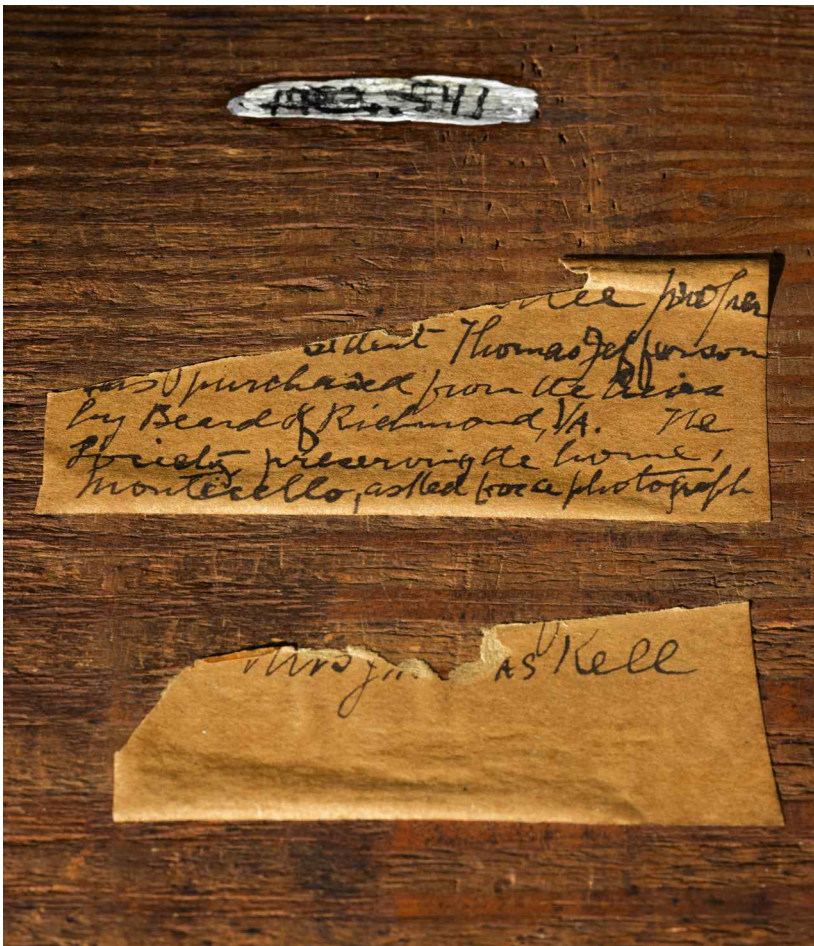 541
the proper
sident Thomas Jefferson
was purchased from the heirs
by Beard of Richmond, VA. The
Society, preserving the home,
Monticello, asked for a photograph
Mrs